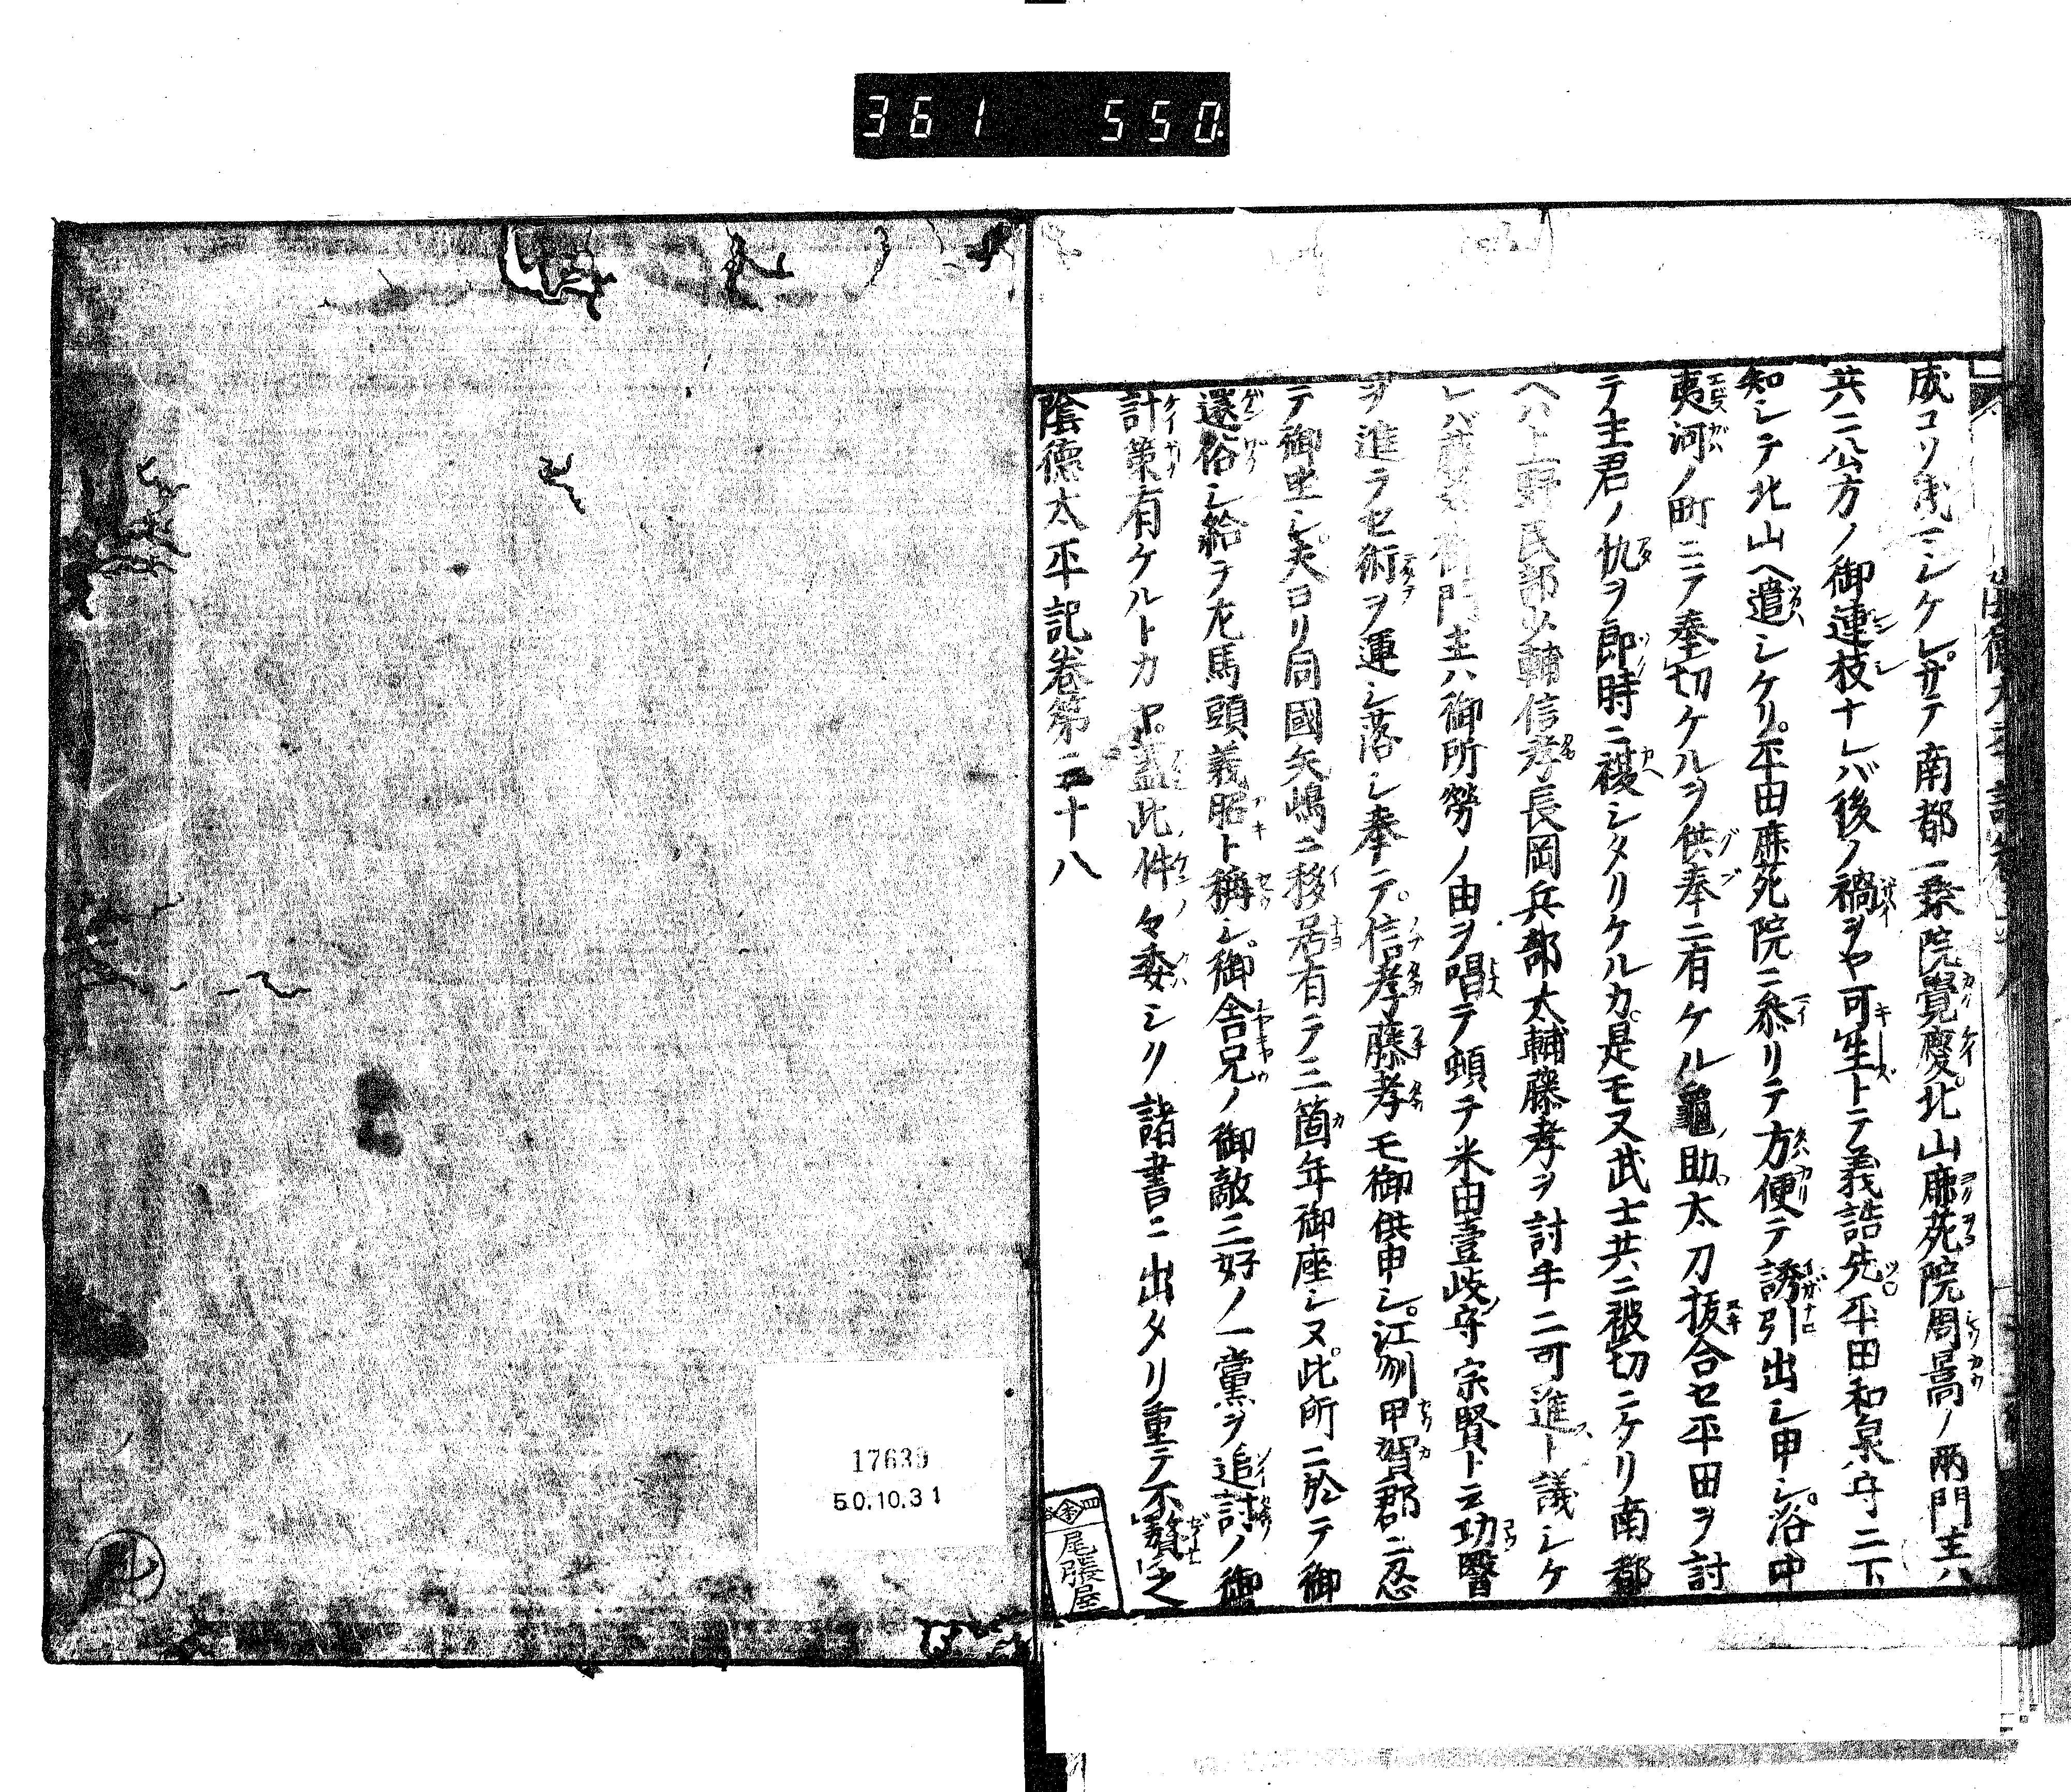 361 550.
成コソ浅マシケレ。サテ南都一乗院覺慶。北山鹿苑院周暠ノ兩門主ハ
共ニ公方ノ御連枝ナレバ後ノ禍ヲヤ可生トテ義誥先。平田和泉守ニ下
知シテ北山ヘ遣シケリ。平田鹿苑院ニ参リテ方便テ誘引出シ申シ。洛中
夷河ノ町ニテ奉切ケルヲ供奉ニ有ケル龜助太刀抜合セ平田ヲ討
テ主君ノ仇ヲ即時ニ復シタリケルカ。是モ又武士共ニ被切ニケリ南都
ヘハ上野民部少輔信孝長岡兵部太輔藤孝ヲ討手ニ可進ト議シケ
レバ 御門主ハ御所勞ノ由ヲ唱テ頓テ米田壹岐守宗賢ト云功醫
ヲ進ラセ術ヲ運シ落シ奉テ。信孝藤孝モ御供申シ。江州甲賀郡ニ忍
テ御坐シ。夫ヨリ同國矢嶋ニ移居有テ二箇年御座シヌ。此所ニ於テ御
還俗シ給テ左馬頭義昭ト稱シ。御舎兄ノ御敵三好ノ一黨ヲ追討ノ御
計策有ケルトカヤ。蓋此件々委シク諸書ニ出タリ重テ不贅之
陰德太平記卷第二十八
尾張屋
17639
50.10.31